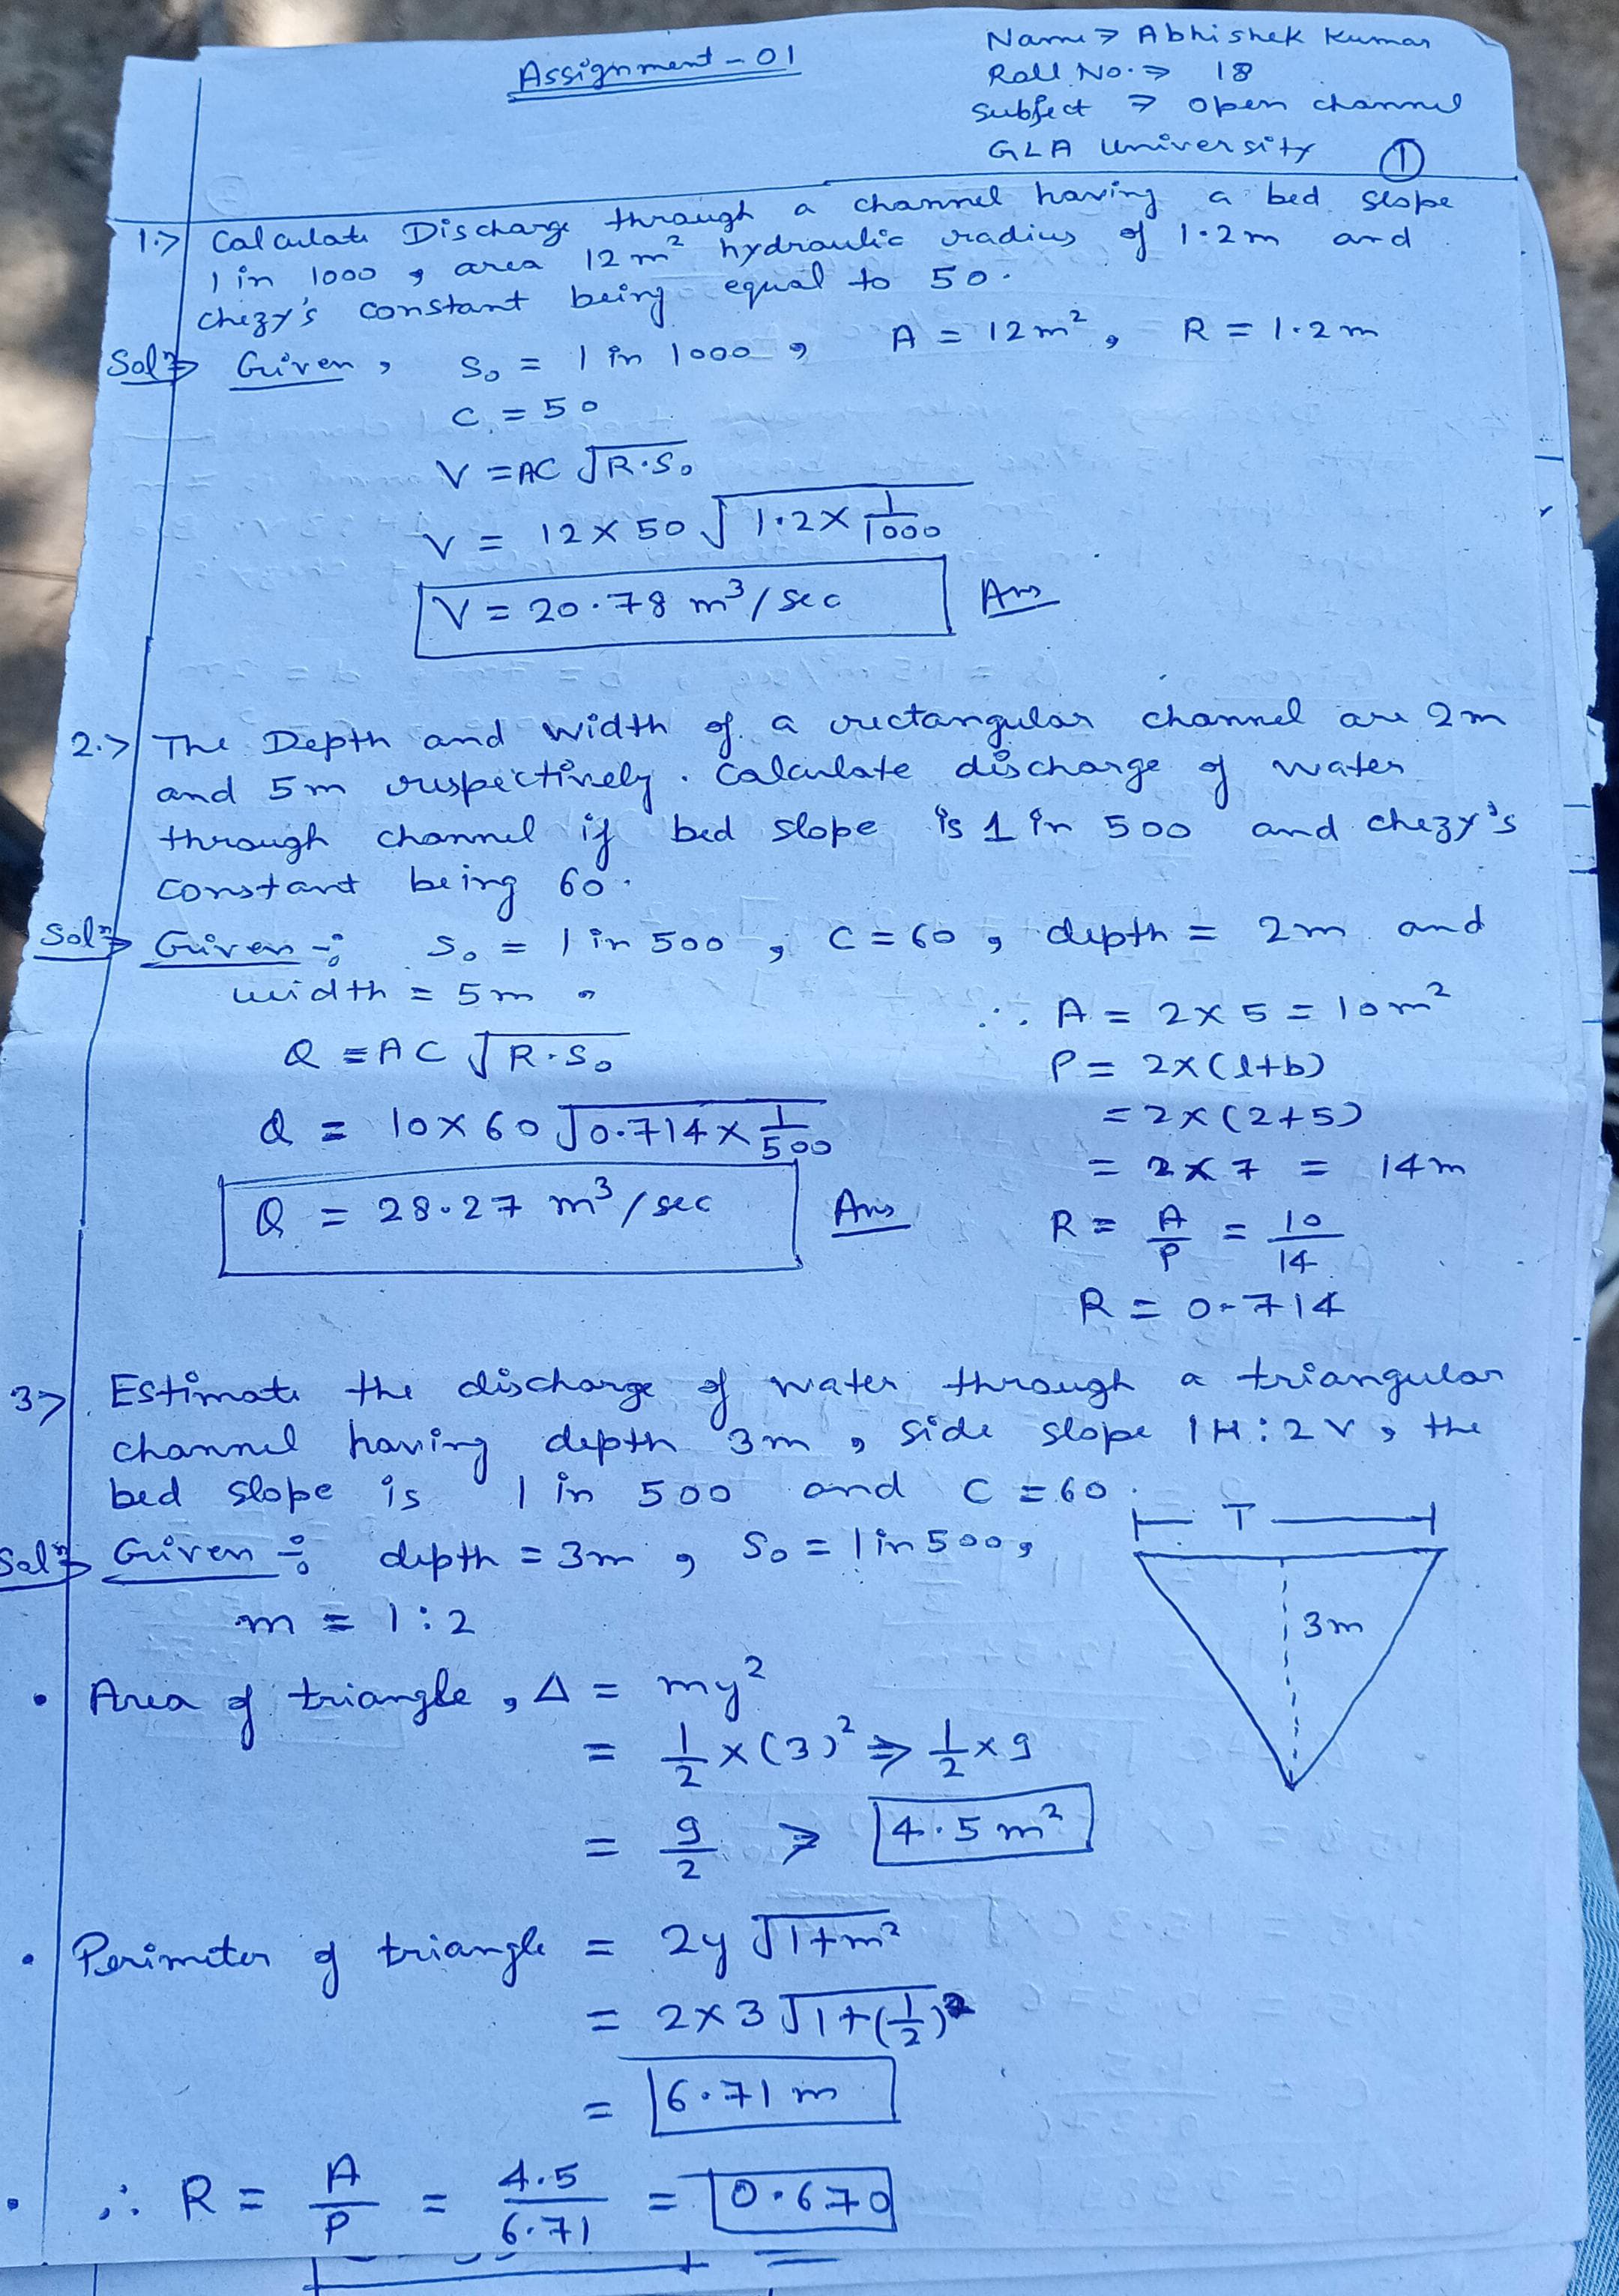 Assignment - 01
Name → Abhishek Kumar
Roll No. ⇒ 18
Subject ⇒ open channel
GLA University ①
1.> Calculate Discharge through a channel having a bed slope
1 in 1000, area 12 m² hydraulic radius of 1.2m and
chezy's constant being equal to 50.
Solⁿ⇒ Given, S₀ = 1 in 1000, A = 12m², R = 1.2m
C = 50
V = AC √R.S₀
V = 12 × 50 √1.2 × 1/1000
V = 20.78 m³/sec Ans
2.> The Depth and width of a rectangular channel are 2m
and 5m respectively. Calculate discharge of water
through channel if bed slope is 1 in 500 and chezy's
constant being 60.
Solⁿ⇒ Given ÷ S₀ = 1 in 500, C = 60, depth = 2m and
width = 5m,
Q = AC √R.S₀
Q = 10 × 60 √0.714 × 1/500
Q = 28.27 m³/sec Ans
∴ A = 2 × 5 = 10m²
P = 2×(l+b)
= 2×(2+5)
= 2×7 = 14m
R = A/P = 10/14
R = 0.714
3> Estimate the discharge of water through a triangular
channel having depth 3m, side slope 1H:2V, the
bed slope is 1 in 500 and C = 60.
Solⁿ⇒ Given ÷ depth = 3m, S₀ = 1 in 500,
m = 1:2
T
3m
• Area of triangle, Δ = my²
= 1/2 × (3)² ⇒ 1/2 × 9
= 9/2 ⇒ 4.5 m²
• Perimeter of triangle = 2y √1+m²
= 2×3 √1+(1/2)²
= 6.71 m
• ∴ R = A/P = 4.5/6.71 = 0.670